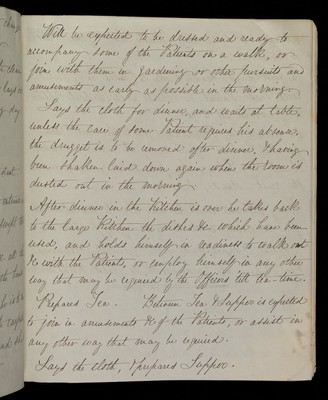 Will be expected to be dressed and ready to
accompany some of the Patients on a walk, or
join with them in Gardening or other pursuits and
amusements as early as possible in the morning.
Lays the cloth for dinner, and waits at table,
unless the care of some Patient requires his absence,
the drugget is to be removed after dinner, & having
been shaken laid down again when the room is
dusted out in the morning
After dinner in the Kitchen is over he takes back
to the large Kitchen the dishes &c which have been
used, and holds himself in readiness to walk out
&c with the Patients, or employ himself in any other
way that may be required by the Officers till tea-time.
Prepares Tea. Between Tea & Supper is expected
to join in amusements &c of the Patients, or assist in
any other way that may be required.
Lays the cloth, & prepares Supper.